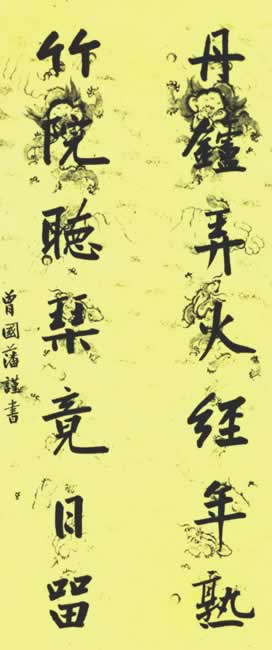 丹鑪弄火經年熟
竹院聽琹竟日畱
曾國藩謹書